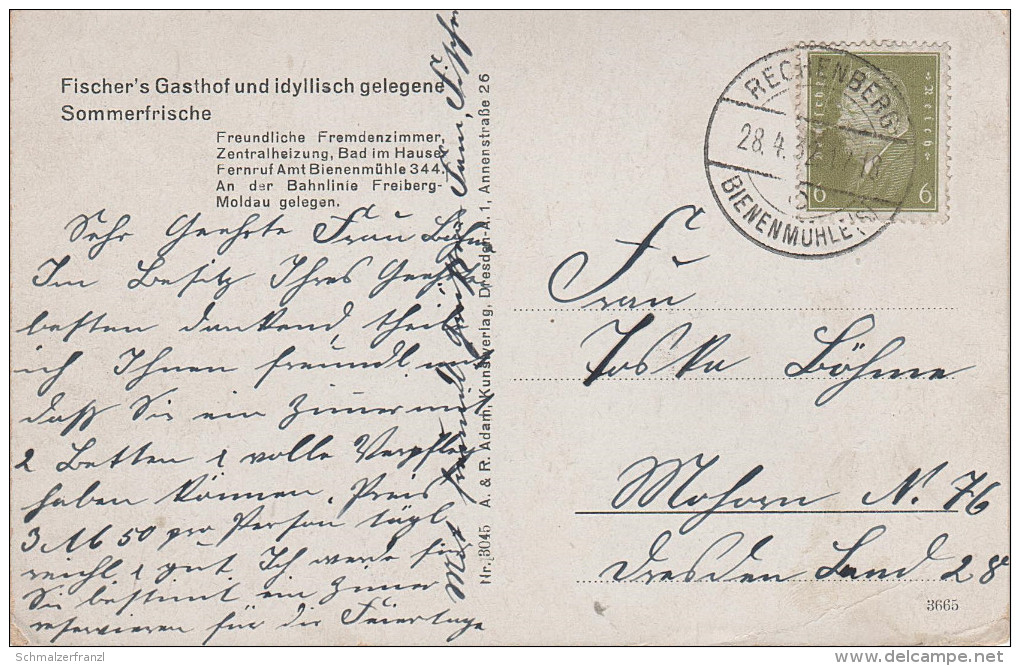 Fischer's Gasthof und idyllisch gelegene
Sommerfrische
Freundliche Fremdenzimmer,
Zentralheizung, Bad im Hause
Fernruf Amt Bienenmühle 344.
An der Bahnlinie Freiberg-
Moldau gelegen.
Sehr Geehrte Frau Böhm
Im Besitz Ihres Geehrte
besten dankend, theile
ich Ihnen freundl. mit
daß Sie ein Zimer mit
2 Betten & volle Verpfleg
haben können, Preis
3 M 50 pro Person tägl
reichl & gut Ich werde für
Sie bestimt ein Zimer
reservieren für die Feiertage
Mit freundl Fam. Fischer
Nr. 3045 A. & R. Adam, Kunstverlag, Dresden-A. 1, Annenstraße 26
RECHENBERG-
28.4.32
BIENENMÜHLE
6 6
Frau
Toska Böhme
Mohorn N. 76
Dresden Land 28
3665
Schmalzerfranzl
delcampe.net